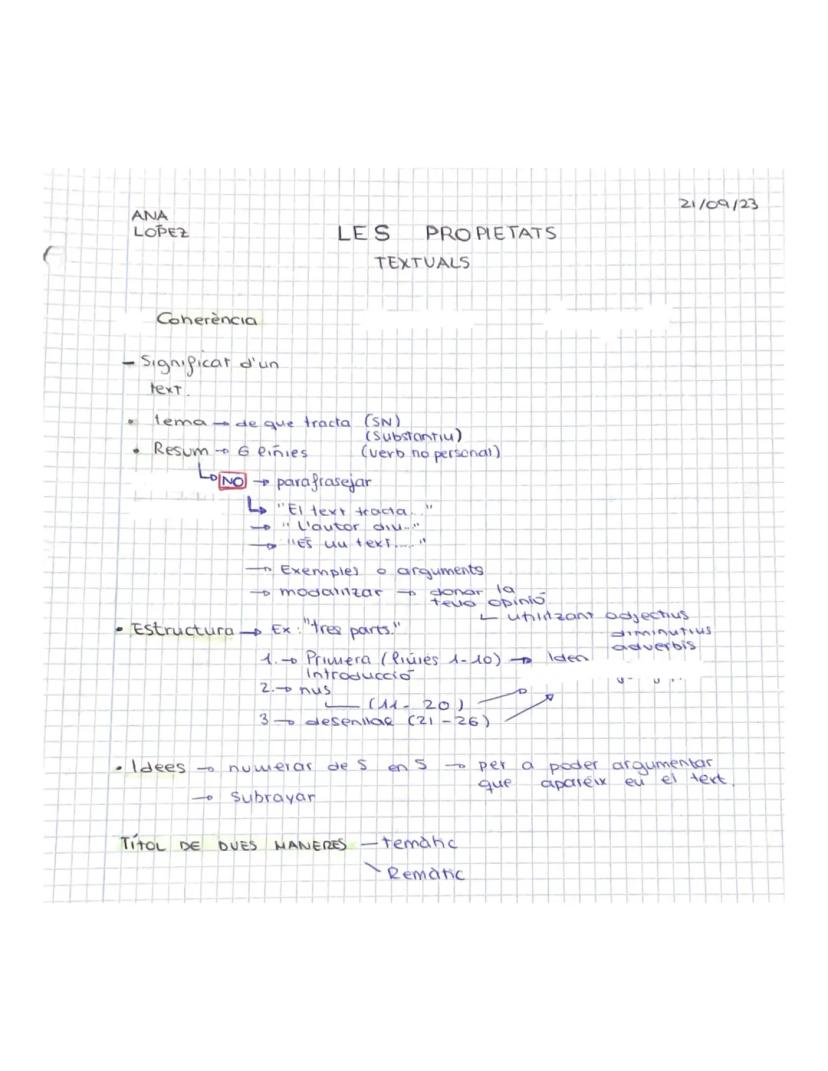 21/09/23
ANA
LOPEZ
LES PROPIETATS
TEXTUALS
Coherència
- Significat d'un
text.
• tema → de que tracta (SN)
(Substantiu)
• Resum → 6 línies (verb no personal)
↳ NO → parafrasejar
↳ "El text tracta..."
→ "L'autor diu..."
→ "És un text...."
→ Exemples o arguments
→ modalitzar → donar la
teua opinió
utilitzant adjectius
diminutius
adverbis
• Estructura → Ex: "tres parts."
1. → Primera (línies 1-10) → Idea
Introducció
2. → nus
(11-20)
3 → desenllaç (21-26)
• Idees → numerar de 5 en 5 → per a poder argumentar
que apareix en el text.
→ subrayar
TÍTOL DE DUES MANERES - temàtic
Remàtic